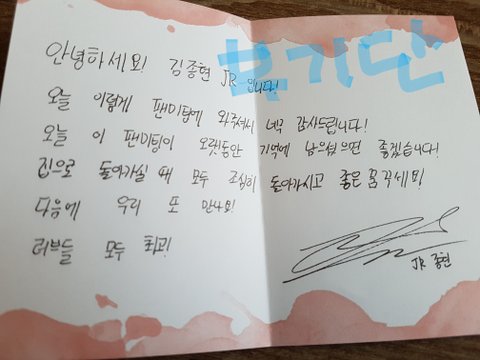 부기단
안녕하세요! 김종현 JR 입니다!
오늘 이렇게 팬미팅에 와주셔서 너무 감사드립니다!
오늘 이 팬미팅이 오랫동안 기억에 남으셨으면 좋겠습니다!
집으로 돌아가실 때 모두 조심히 돌아가시고 좋은 꿈 꾸세요!
다음에 우리 또 만나요!
러브들 모두 최고!
JR 종현